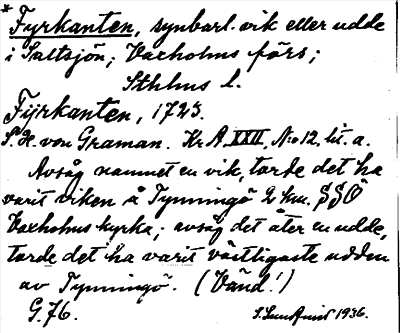 * Fyrkanten, synbarl. vik eller udde
i Saltsjön; Vaxholms förs;
Sthlms l.
Fijrkanten, 1723.
S. H. von Graman. Kr A, XXII, No 12, lit. a.
Avsåg namnet en vik, torde det ha
varit viken å Tynningö 2 km. SSÖ
Vaxholms kyrka; avsåg det åter en udde,
torde det ha varit västligaste udden
av Tynningö. (Vänd!)
G. 76. 1936.